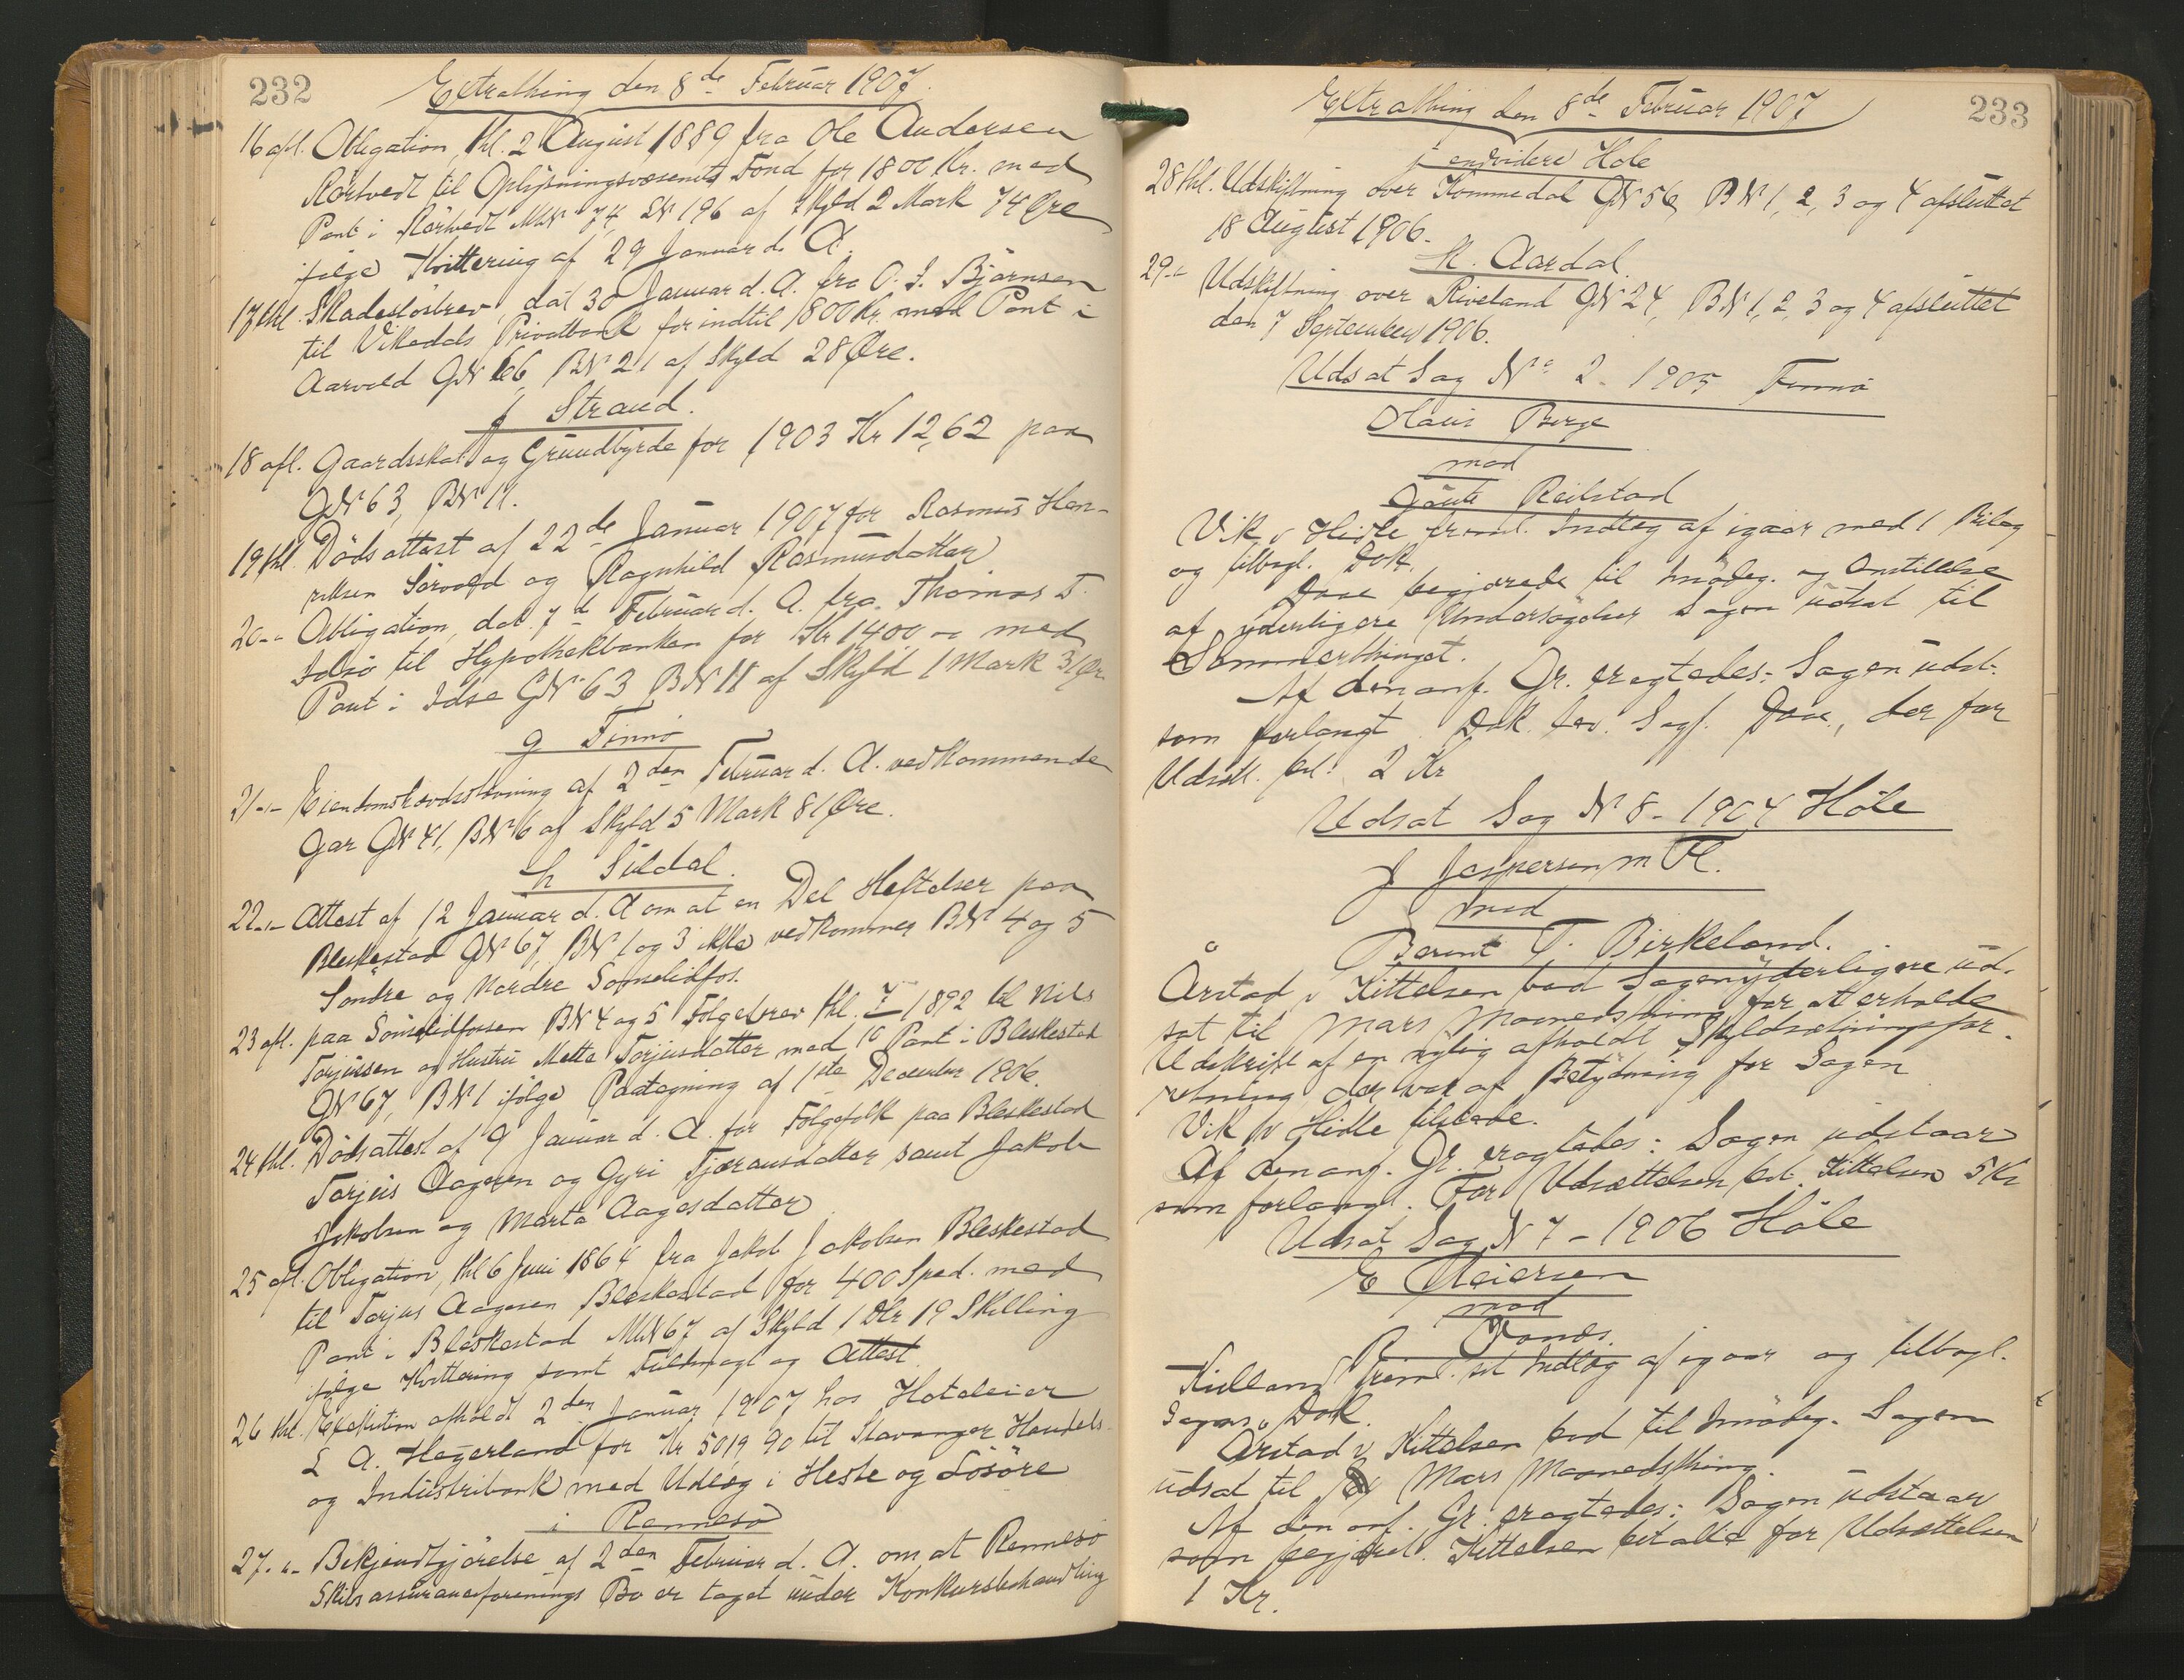 232
Extrathing den 8de Februar 1907.
16 afl. Obligation, thl. 2 August 1889 fra Ole Andersen
Rörtvedt til Oplysningsvæsenets Fond for 1800 Kr. med
Pant i Rörtvedt MN 74, LN 196 af Skyld 2 Mark 74 Øre
ifølge Kvittering af 29 Januar d. A.
17 thl. Skadeslösbrev, dat 30 Januar d. A. fra O. S. Björnsen
til Vikedals Privatbank for indtil 1800 Kr. med Pant i
Aarvold GN 66, BN 21 af Skyld 28 Øre.
f Strand.
18 afl. Gaardsskat og Grundbyrde for 1903 Kr 12,62 paa
GN 63, BN 11.
19 thl. Dödsattest af 22de Januar 1907 for Rasmus Hen-
riksen Sörvold og Ragnhild Rasmusdatter
20 -"- Obligation, dat. 7de Februar d. A. fra Thomas T.
Idsö til Hypothekbanken for Kr 1400 - med
Pant i Idse GN 63 BN 11 af Skyld 1 Mark 31 Ør.
g Finnö
21 -"- Eiendomshævdslovning af 2den Februar d. A. vedkommende
Gar GN 41, BN 6 af Skyld 5 Mark 81 Øre.
h Suldal.
22 -"- Attest af 12 Januar d. A om at en Del Heftelser paa
Bleskestad GN 67, BN 1 og 3 ikke vedkommer BN 4 og 5
Söndre og Nordre Sömelidfos.
23 afl. paa Sömelidfossen BN 4 og 5 Fölgebrev thl. 1892 til Nils
Torjussen og Hustru Mette Torjusdatter med 1o Pant i Bleskestad
GN 67, BN 1 ifölge Paategning af 1ste December 1906.
24 thl. Dödsattest af 9 Januar d. A. for Fölgefolk paa Bleskestad
Torjus Aagesen og Gyri Tjæransdatter samt Jakob
Jakobsen og Marta Aagesdatter
25 afl. Obligation, thl 6 Juni 1864 fra Jakob Jakobsen Bleskestad
til Torjus Aagesen Bleskestad for 400 Sped. med
Pant i Bleskestad MN 67 af Skyld 1 Dlr 19 Skilling
ifølge Kvittering samt Fuldmagt og Attest
26 thl. Exekution afholdt 2den Januar 1907 hos Hoteleier
L A. Hegerland for Kr 5019,90 til Stavanger Handels-
og Industribank med Udlæg i Heste og Lösöre
i Rennesö
27 -"- Bekjendtgjörelse af 2den Februar d. A. om at Rennesö
Skibsassuranceforenings Bo er taget under Konkursbehandling
233
Extrathing den 8de Februar 1907
j endvidere Hole
28 thl. Udskiftning over Hommedal GN 56, BN 1, 2, 3 og 4 afsluttet
18 August 1906.
k. Aardal.
29 -"- Udskiftning over Riveland GN 24, BN 1, 2, 3 og 4 afsluttet
den 7 September 1906.
Udsat Sag No 2 - 1905 Finnö
Olaus Berge
mod
Göute Reilstad
Vik v Hidle freml. Indlæg af igaar med 1 Bilag
og tilbagl. Dok.
Daae begjærede til Imödeg. og Anstillelse
af yderligere Undersögelser Sagen udsat til
Sommerthinget.
Af den anf. Gr. eragtedes: Sagen udst.
som forlangt. Dok. lev. Sagf. Daae, der for
Udsætt. bet. 2 Kr
Udsat Sag N 8 - 1904 Höle
J Jespersen m Fl.
mod
Berent T. Birkeland.
Årstad v Kittelsen bad Sagen yderligere ud-
sat til Mars Maanedsthing for at erholde
Udskrift af en nylig afholdt Skyldsætningsfor-
retning der var af Betydning for Sagen
Vik for Hidle tilstede.
Af den anf. Gr. eragtedes: Sagen udstaar
som forlangt. For Udsættelsen bet. Kittelsen 5 Kr
Udsat Sag N 7 - 1906 Höle
E Meiersen
mod
Tonds.
Kielland freml. sit Indlæg af igaar og tilbagl.
Sagens Dok.
Årstad v Kittelsen bad til Imödeg. Sagen
udsat til Mars Maanedsthing.
Af den anf. Gr. eragtedes: Sagen udstaar
som begjært. Kittelsen betalte for Udsættelsen
1 Kr.